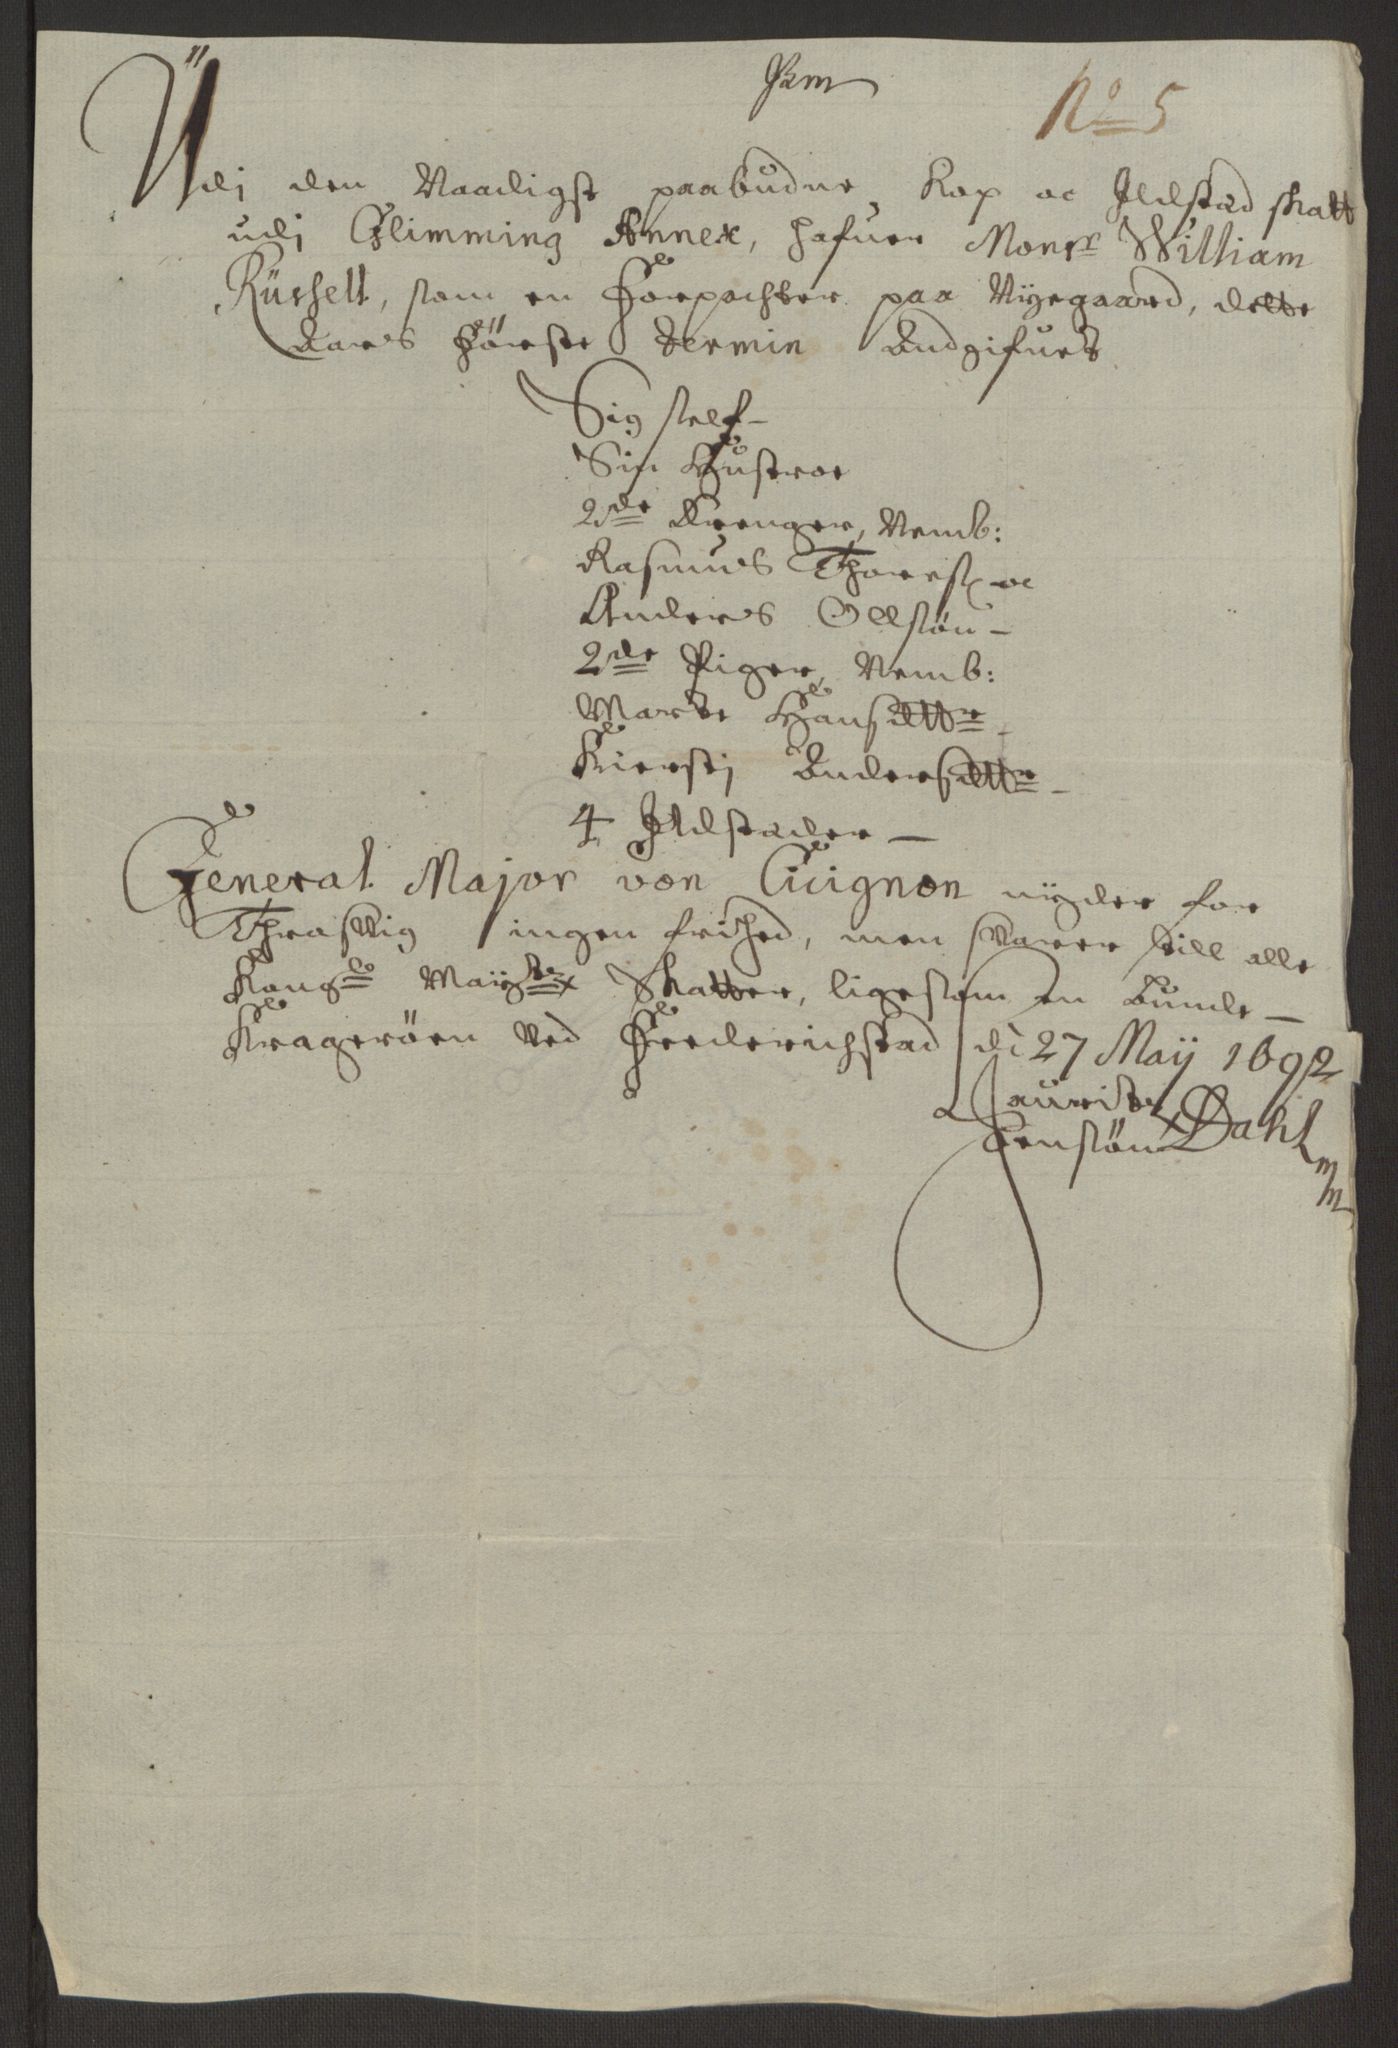 No 5
Udj den Naadigst paabudne Kop oc Ildstad skatt
udj Glimming Annex, hafuer Monsr William
Russell, som en Forpachter paa Nyegaard, dette
Aars første Termin Andgifued
Sig self -
Sin Hustroe
2de Drenger, Nemb:
Rasmus Thoresø oc
Anders Ollsøn -
2de Piger, Nemb:
Marte Hansdttr
Kierstj Andersdttr -
4 Ildstæder -
General Major von Cicignon nyder for
Thrasvig ingen frihed, men svarer till alle
Kongl Mayts Skatter, ligesom en Bunde -
Kragerøen ved Frederichstad d: 27 Maij 1692
Lauritz
Jensøn Dahl
mm